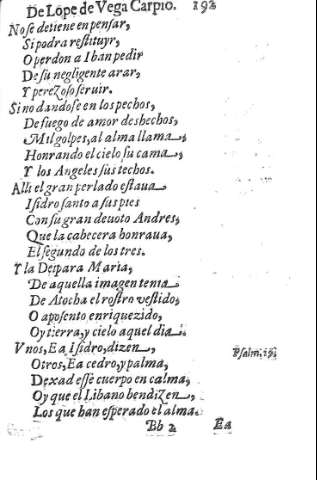 De Lope de Vega Carpio. 192
No se detiene en pensar,
Si podra restituyr,
O perdon a Iban pedir
De su negligente arar,
Y perezoso seruir.
Sino dandose en los pechos,
De fuego de amor deshechos,
Mil golpes, al alma llama,
Honrando el cielo su cama,
Y los Angeles sus techos.
Alli el gran perlado estaua
Isidro santo a sus pies
Con su gran deuoto Andres,
Que la cabecera honraua,
El segundo de los tres.
Y la Deipara Maria,
De aquella imagen tenia
De Atocha el rostro vestido,
O aposento enriquezido,
Oy tierra, y cielo aquel dia.
Vnos, Ea Isidro, dizen,
Psalm.
Otros, Ea cedro, y palma,
Dexad esse cuerpo en calma,
Oy que el Libano bendizen,
Los que han esperado el alma.
Bb 2 Ea